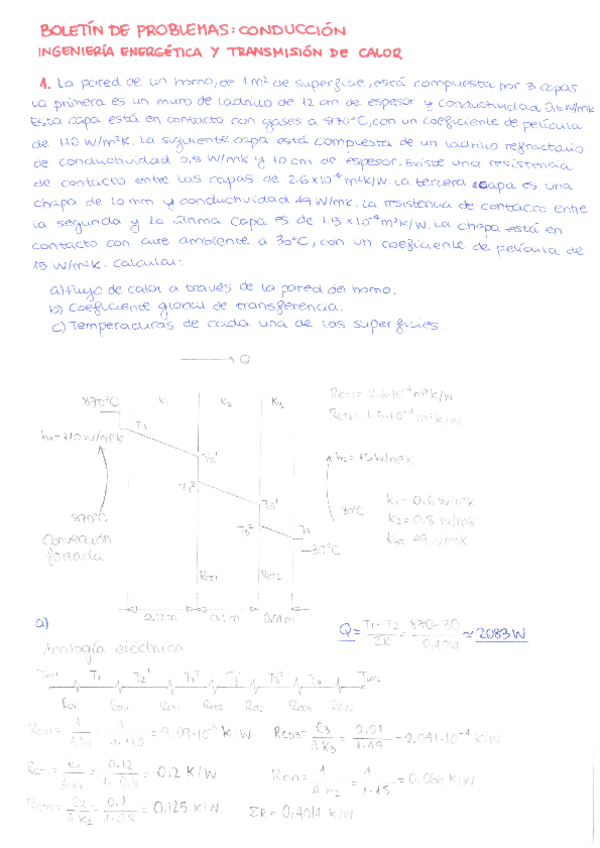 BOLETÍN DE PROBLEMAS: CONDUCCIÓN
INGENIERÍA ENERGÉTICA Y TRANSMISIÓN DE CALOR
1. La pared de un horno, de 1 m² de superficie, está compuesta por 3 capas
La primera es un muro de ladrillo de 12 cm de espesor y conductividad 0.6 W/mK
Esta capa está en contacto con gases a 870°C, con un coeficiente de película
de 110 W/m²K. La siguiente capa está compuesta de un ladrillo refractario
de conductividad 0,8 W/mK y 10 cm de espesor. Existe una resistencia
de contacto entre las capas de 2.6×10⁻⁴ m²K/W. La tercera capa es una
chapa de 10 mm y conductividad 49 W/mK. La resistencia de contacto entre
la segunda y la última capa es de 1.5 × 10⁻⁴ m²K/W. La chapa está en
contacto con aire ambiente a 30°C, con un coeficiente de película de
15 W/m²K. Calcular:
a) Flujo de calor a través de la pared del horno.
b) Coeficiente global de transferencia.
c) Temperaturas de cada una de las superficies.
Q
870°C K₁ K₂ K₃
RCT1 = 2.6·10⁻⁴ m²K/W
RCT2 = 1.5·10⁻⁴ m²K/W
T₁
h₁=110 W/m²K
T₂'
h₂=15 W/m²K
T₂²
T₃'
K₁ = 0,6 W/mK
870°C
T₃² T₄
30°C
K₂ = 0,8 W/mK
Convección
30°C
K₃ = 49 W/mK
forzada
RCT1 RCT2
0.12 m 0.1 m 0.01 m
a)
Q = T₁-T₂ / ΣR = 870-30 / 0,4014 ≈ 2083 W
Analogía eléctrica
T∞1 T₁ T₂' T₂² T₃' T₃² T₄ T∞2
RCV1 RCD1 RCT1 RCD2 RCT2 RCD3 RCV2
RCV1 = 1 / A h₁ = 1 / 1·110 = 9.09·10⁻³ K/W
RCD3 = E₃ / A K₃ = 0,01 / 1·49 = 2.041·10⁻⁴ K/W
RCD1 = E₁ / A K₁ = 0.12 / 1·0.6 = 0.2 K/W
RCV2 = 1 / A h₂ = 1 / 1·15 = 0.066 K/W
RCD2 = E₂ / A K₂ = 0.1 / 1·0.8 = 0.125 K/W
ΣR = 0,4014 K/W